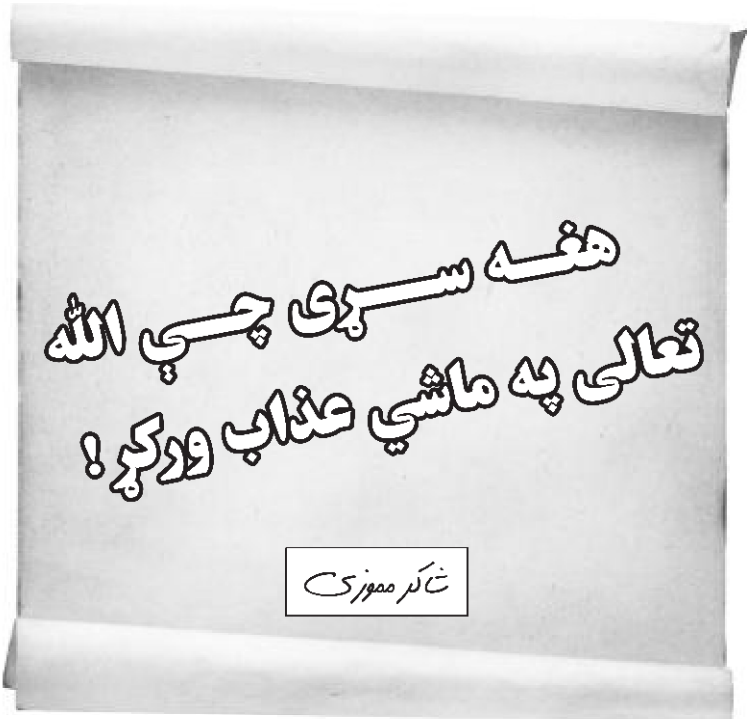 هغه سړی چې الله
تعالی په ماشي عذاب ورکړ!
شاکر مموزی